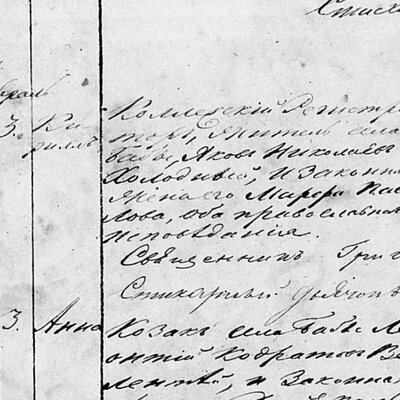 Стих
враль
3. Ки- Коллежскій Регистра
рилль торъ, житель села
Бабы, Яковъ Николаевъ
Холодный, и законна
жена его Марфа Пав
лова, оба православна
исповѣданія.
Священникъ Григ
Стихарный дьячокъ
3. Анна Козакъ села Бабы Ле
онтій Кодратовъ Ве
лентѣй, и Законна